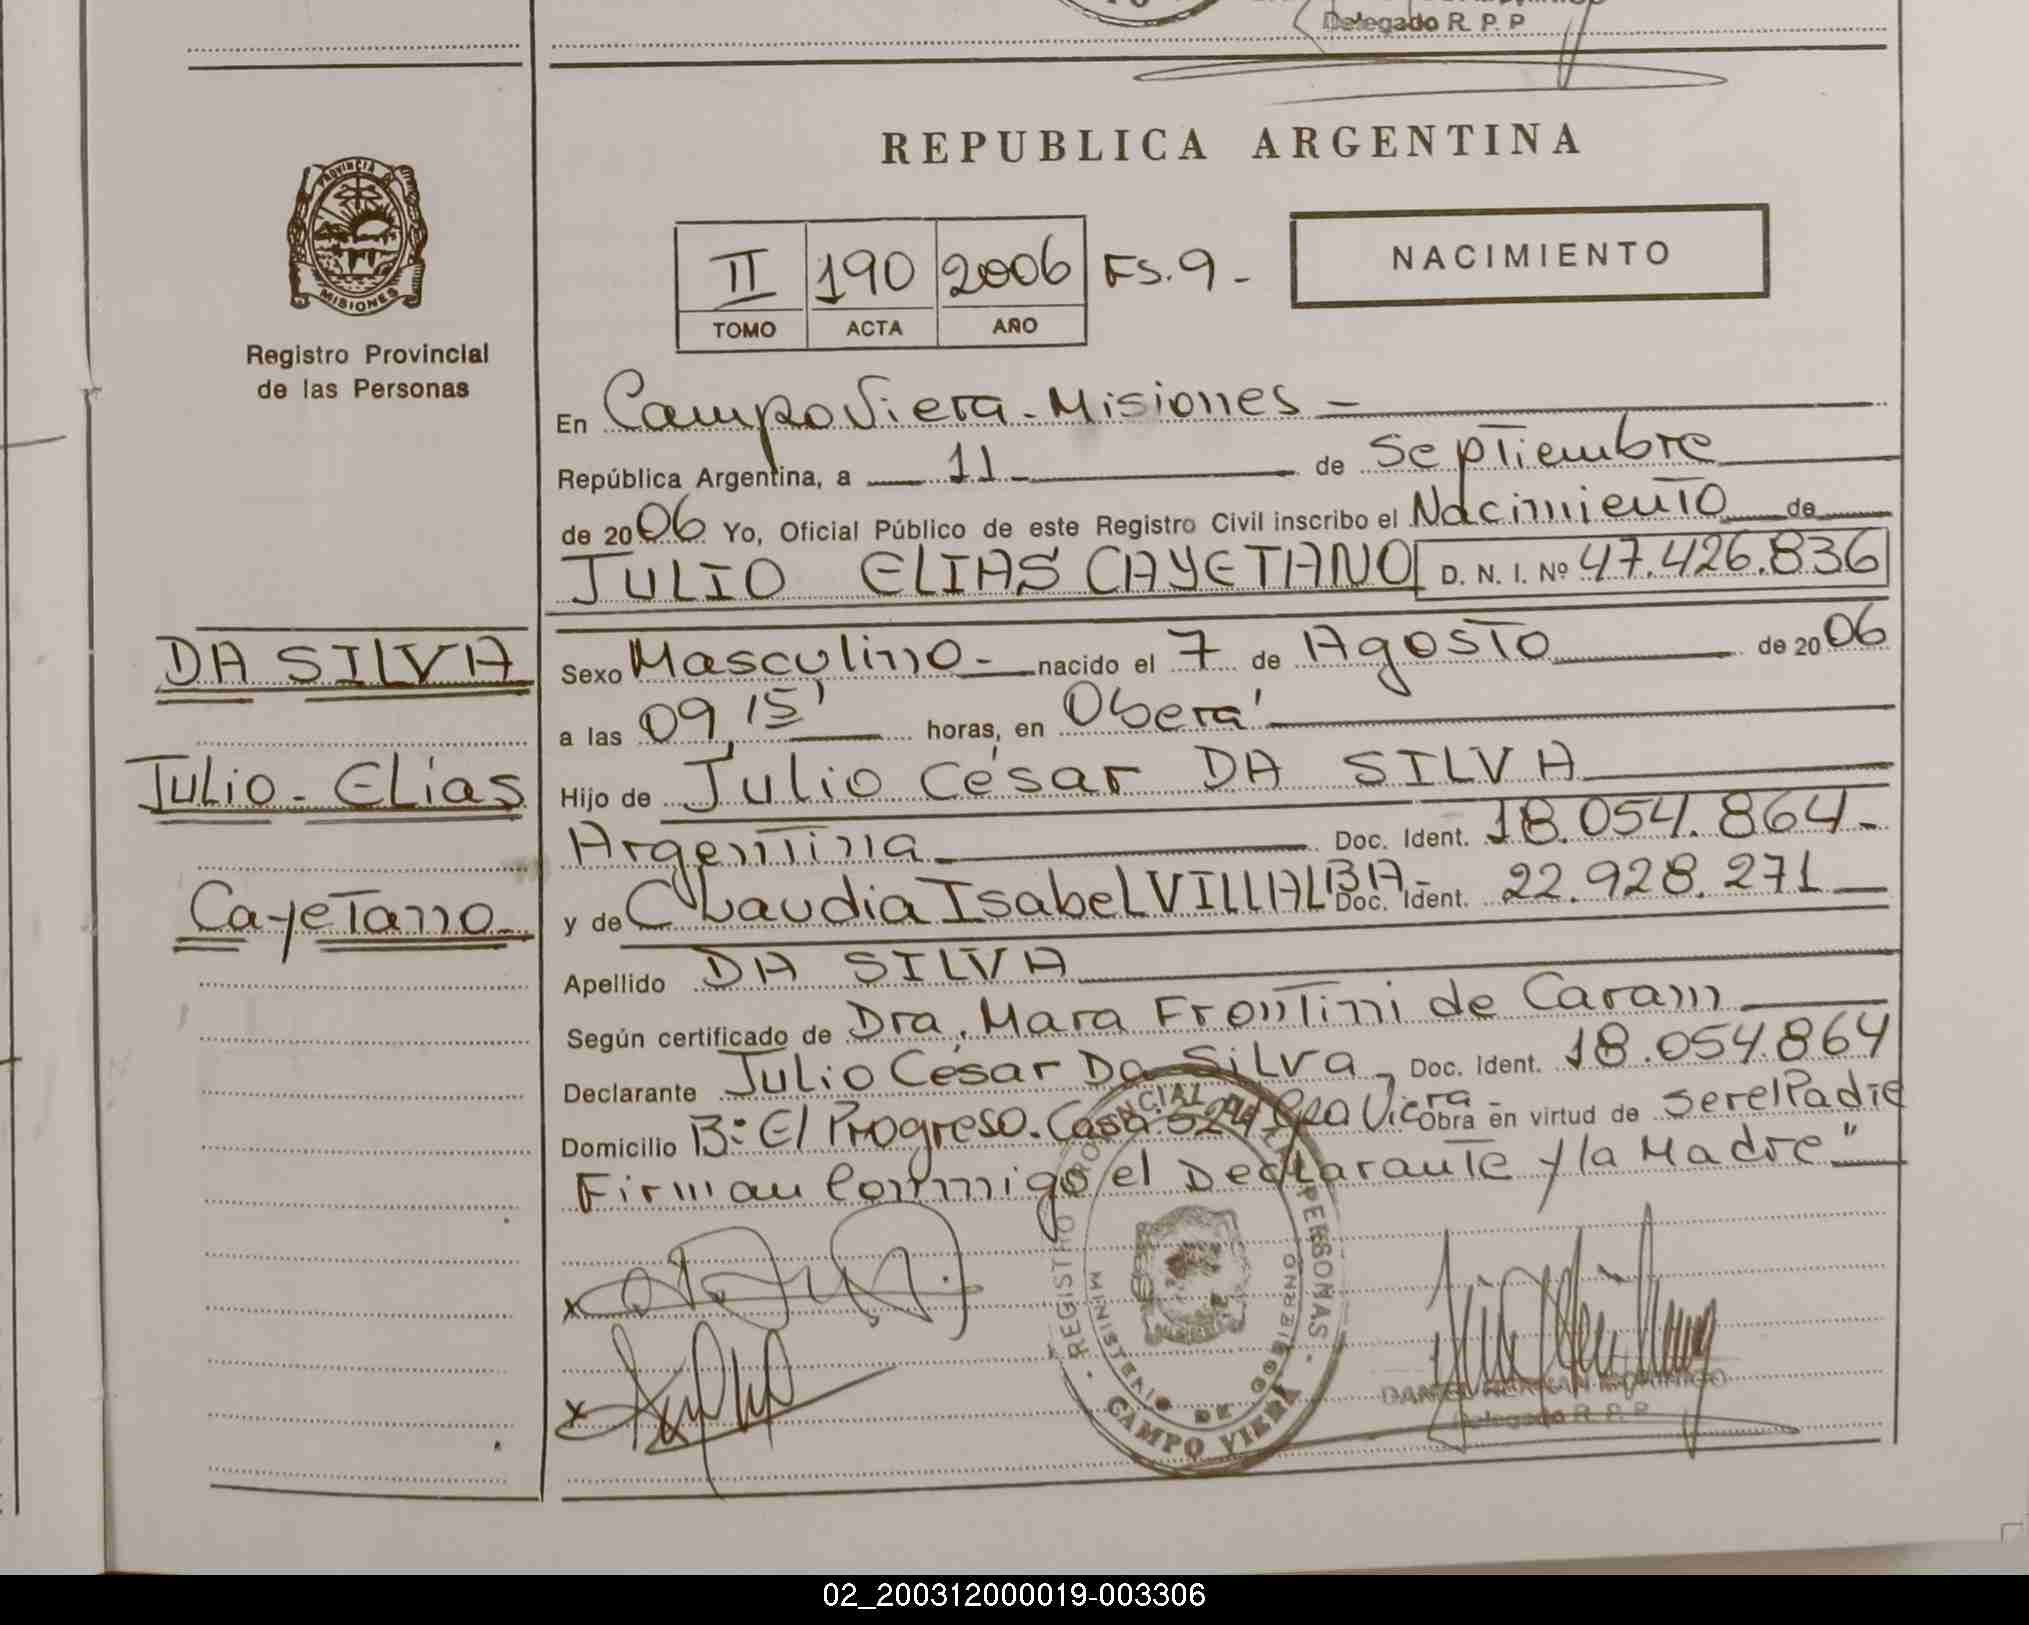 Delegado R. P. P
PROVINCIA DE
MISIONES
Registro Provincial
de las Personas
DA SILVA
Julio - Elías
Cayetano
REPUBLICA ARGENTINA
II 190 2006 Fs. 9 -
TOMO ACTA AÑO
NACIMIENTO
En Campo Viera - Misiones -
República Argentina, a 11 de Septiembre
de 2006 Yo, Oficial Público de este Registro Civil inscribo el Nacimiento de
JULIO ELIAS CAYETANO D. N. I. Nº 47.426.836
Sexo Masculino - nacido el 7 de Agosto de 2006
a las 09,15' horas, en Oberá
Hijo de Julio César DA SILVA
Argentina Doc. Ident. 18.054.864 -
y de Claudia Isabel VILLALBA - Doc. Ident. 22.928.271
Apellido DA SILVA
Según certificado de Dra. Mara Frontini de Caram
Declarante Julio César Da Silva - Doc. Ident. 18.054.864
Domicilio B: El Progreso. Casa 524 Cpo Viera - Obra en virtud de ser el Padre
Firman conmigo el Declarante y la Madre"
REGISTRO PROVINCIAL DE LAS PERSONAS
MINISTERIO DE GOBIERNO
CAMPO VIERA
DANIEL HERNAN MORINIGO
Delegado R. P. P.
02_200312000019-003306